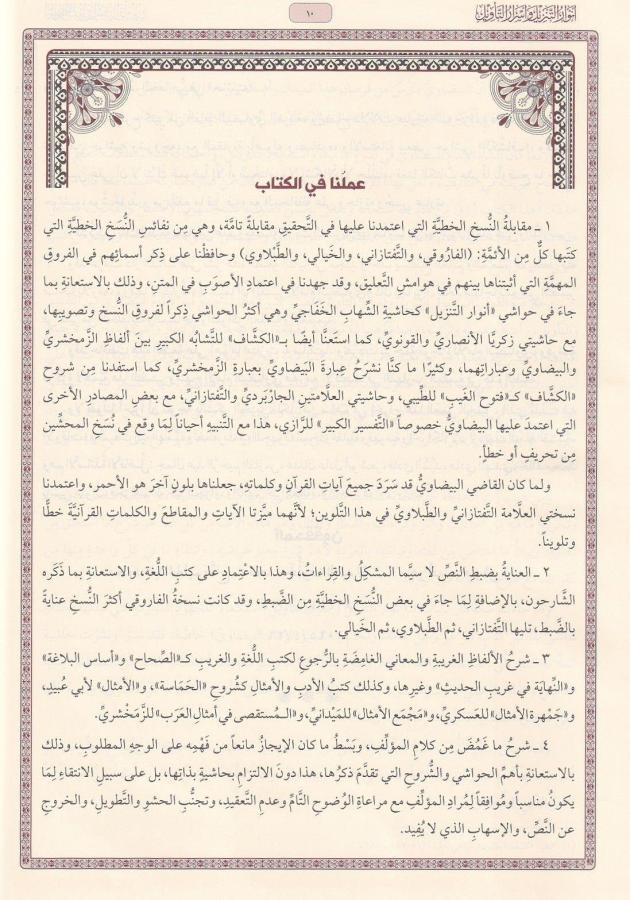 أنوار التنزيل وأسرار التأويل
١٠
عملُنا في الكتاب
١ ـ مقابلةُ النُّسخِ الخطيَّةِ التي اعتمدنا عليها في التَّحقيقِ مقابلةً تامَّة، وهي مِن نفائسِ النُّسَخِ الخطيَّةِ التي
كتَبها كلٌّ مِن الأئمَّة: (الفارُوقي، والتَّفتازاني، والخَيالي، والطَّبْلاوي) وحافظْنا على ذِكر أسمائِهم في الفروقِ
المهمَّةِ التي أثبتناها بينهم في هوامشِ التَّعليق، وقد جهدنا في اعتمادِ الأصوَبِ في المتنِ، وذلك بالاستعانةِ بما
جاءَ في حواشي «أنوار التَّنزيل» كحاشيةِ الشِّهابِ الخَفَاجيِّ وهي أكثرُ الحواشي ذِكراً لفروقِ النُّسخ وتصويبِها،
مع حاشيتي زكريَّا الأنصاريِّ والقونويِّ، كما استعنَّا أيضًا بـ«الكشَّاف» للتَّشابُه الكبيرِ بينَ ألفاظِ الزَّمخشريِّ
والبيضاويِّ وعباراتِهما، وكثيرًا ما كنَّا نشرَحُ عِبارةَ البَيضاويِّ بعبارةِ الزَّمخشريِّ، كما استفدنا مِن شروحِ
«الكشَّاف» كـ«فتوح الغَيبِ» للطِّيبي، وحاشيتي العلَّامتينِ الجارْبَرديِّ والتَّفتازانيِّ، مع بعضِ المصادرِ الأخرى
التي اعتمدَ عليها البيضاويُّ خصوصاً «التَّفسير الكبير» للرَّازي، هذا مع التَّنبيهِ أحياناً لِمَا وقع في نُسَخِ المحشِّين
مِن تحريفٍ أو خطأ.
ولما كان القاضي البيضاويُّ قد سَرَدَ جميعَ آياتِ القرآنِ وكلماتِه، جعلناها بلونٍ آخرَ هو الأحمر، واعتمدنا
نسختي العلَّامة التَّفتازانيِّ والطَّبلاويِّ في هذا التَّلوين؛ لأنَّهما ميَّزتا الآياتِ والمقاطعَ والكلماتِ القرآنيَّةَ خطًّا
وتلويناً.
٢ ـ العنايةُ بضبطِ النَّصِّ لا سيَّما المشكِلُ والقِراءاتُ، وهذا بالاعْتِمادِ على كتبِ اللُّغةِ، والاستعانةِ بما ذَكَره
الشَّارحون، بالإضافةِ لِمَا جاءَ في بعض النُّسَخِ الخطيَّةِ مِن الضَّبطِ، وقد كانت نسخةُ الفاروقي أكثرَ النُّسخِ عنايةً
بالضَّبط، تليها التَّفتازاني، ثم الطَّبلاوي، ثم الخَيالي.
٣ ـ شرحُ الألفاظِ الغريبةِ والمعاني الغامِضَةِ بالرُّجوعِ لكتبِ اللُّغةِ والغريبِ كـ«الصِّحاح» و«أساس البلاغة»
و«النِّهاية في غريبِ الحديثِ» وغيرِها، وكذلك كتبُ الأدبِ والأمثالِ كشُروحِ «الحَمَاسة»، و«الأمثال» لأبي عُبيدٍ،
و«جَمْهرة الأمثال» للعسكريِّ، و«مَجْمَع الأمثال» للمَيْدانيِّ، و«المُستقصى في أمثالِ العرَب» للزَّمَخْشريِّ.
٤ ـ شرحُ ما غَمُضَ مِن كلامِ المؤلِّفِ، وبَسْطُ ما كان الإيجازُ مانعاً من فَهْمِه على الوجهِ المطلوبِ، وذلك
بالاستعانةِ بأهمِّ الحواشي والشُّروحِ التي تقدَّمَ ذكرُها، هذا دونَ الالتزامِ بحاشيةٍ بذاتِها، بل على سبيلِ الانتقاءِ لِمَا
يكونُ مناسباً ومُوافِقاً لِمُرادِ المؤلِّفِ مع مراعاةِ الوُضوحِ التَّامِّ وعدمِ التَّعقيدِ، وتجنُّبِ الحشوِ والتَّطويلِ، والخروجِ
عن النَّصِّ، والإسهابِ الذي لا يُفِيد.